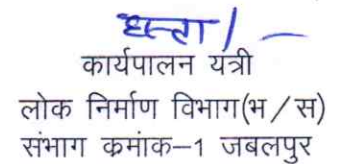 हस्ता/-
कार्यपालन यंत्री
लोक निर्माण विभाग(भ/स)
संभाग क्रमांक-1 जबलपुर